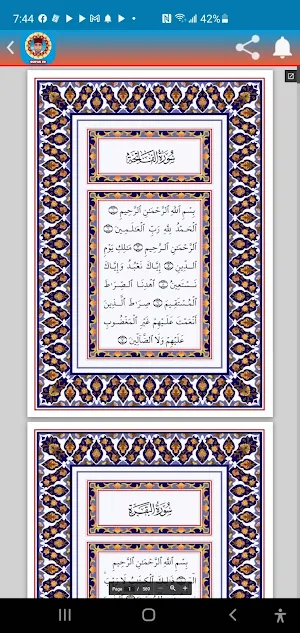 7:44
42%
سُورَةُ الفَاتِحَةِ
بِسْمِ ٱللَّهِ ٱلرَّحْمَـٰنِ ٱلرَّحِيمِ ١
ٱلْحَمْدُ لِلَّهِ رَبِّ ٱلْعَـٰلَمِينَ ٢
ٱلرَّحْمَـٰنِ ٱلرَّحِيمِ ٣ مَـٰلِكِ يَوْمِ
ٱلدِّينِ ٤ إِيَّاكَ نَعْبُدُ وَإِيَّاكَ
نَسْتَعِينُ ٥ ٱهْدِنَا ٱلصِّرَٰطَ
ٱلْمُسْتَقِيمَ ٦ صِرَٰطَ ٱلَّذِينَ
أَنْعَمْتَ عَلَيْهِمْ غَيْرِ ٱلْمَغْضُوبِ
عَلَيْهِمْ وَلَا ٱلضَّآلِّينَ ٧
سُورَةُ البَقَرَةِ
بِسْمِ ٱللَّهِ ٱلرَّحْمَـٰنِ ٱلرَّحِيمِ
Page 1 / 509